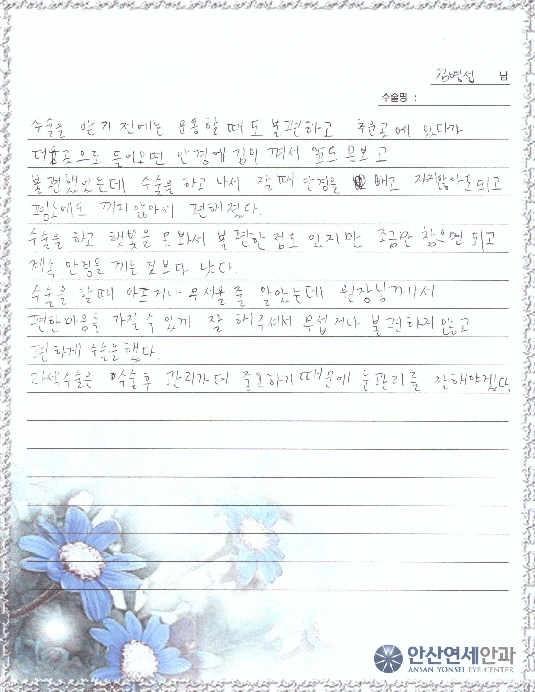 김병섭 님
수술명 :
수술을 받기 전에는 운동할 때도 불편하고 추운곳에 있다가
더운곳으로 들어오면 안경에 김이 껴서 앞도 못보고
불편했었는데 수술을 하고 나서 잘때 안경을 빼고 자지않아도 되고
평소에도 끼지 않아서 편해졌다.
수술을 하고 햇빛을 못봐서 불편한점도 있지만 조금만 참으면 되고
계속 안경을 끼는 것보다 낫다.
수술을 할때 아프거나 무서울 줄 알았는데 원장님께서
편한마음을 가질 수 있게 잘 해주셔서 무섭거나 불편하지 않고
편하게 수술을 했다.
라섹수술은 수술후 관리가 더 중요하기 때문에 눈관리를 잘해야겠다
안산연세안과
ANSAN YONSEI EYE CENTER